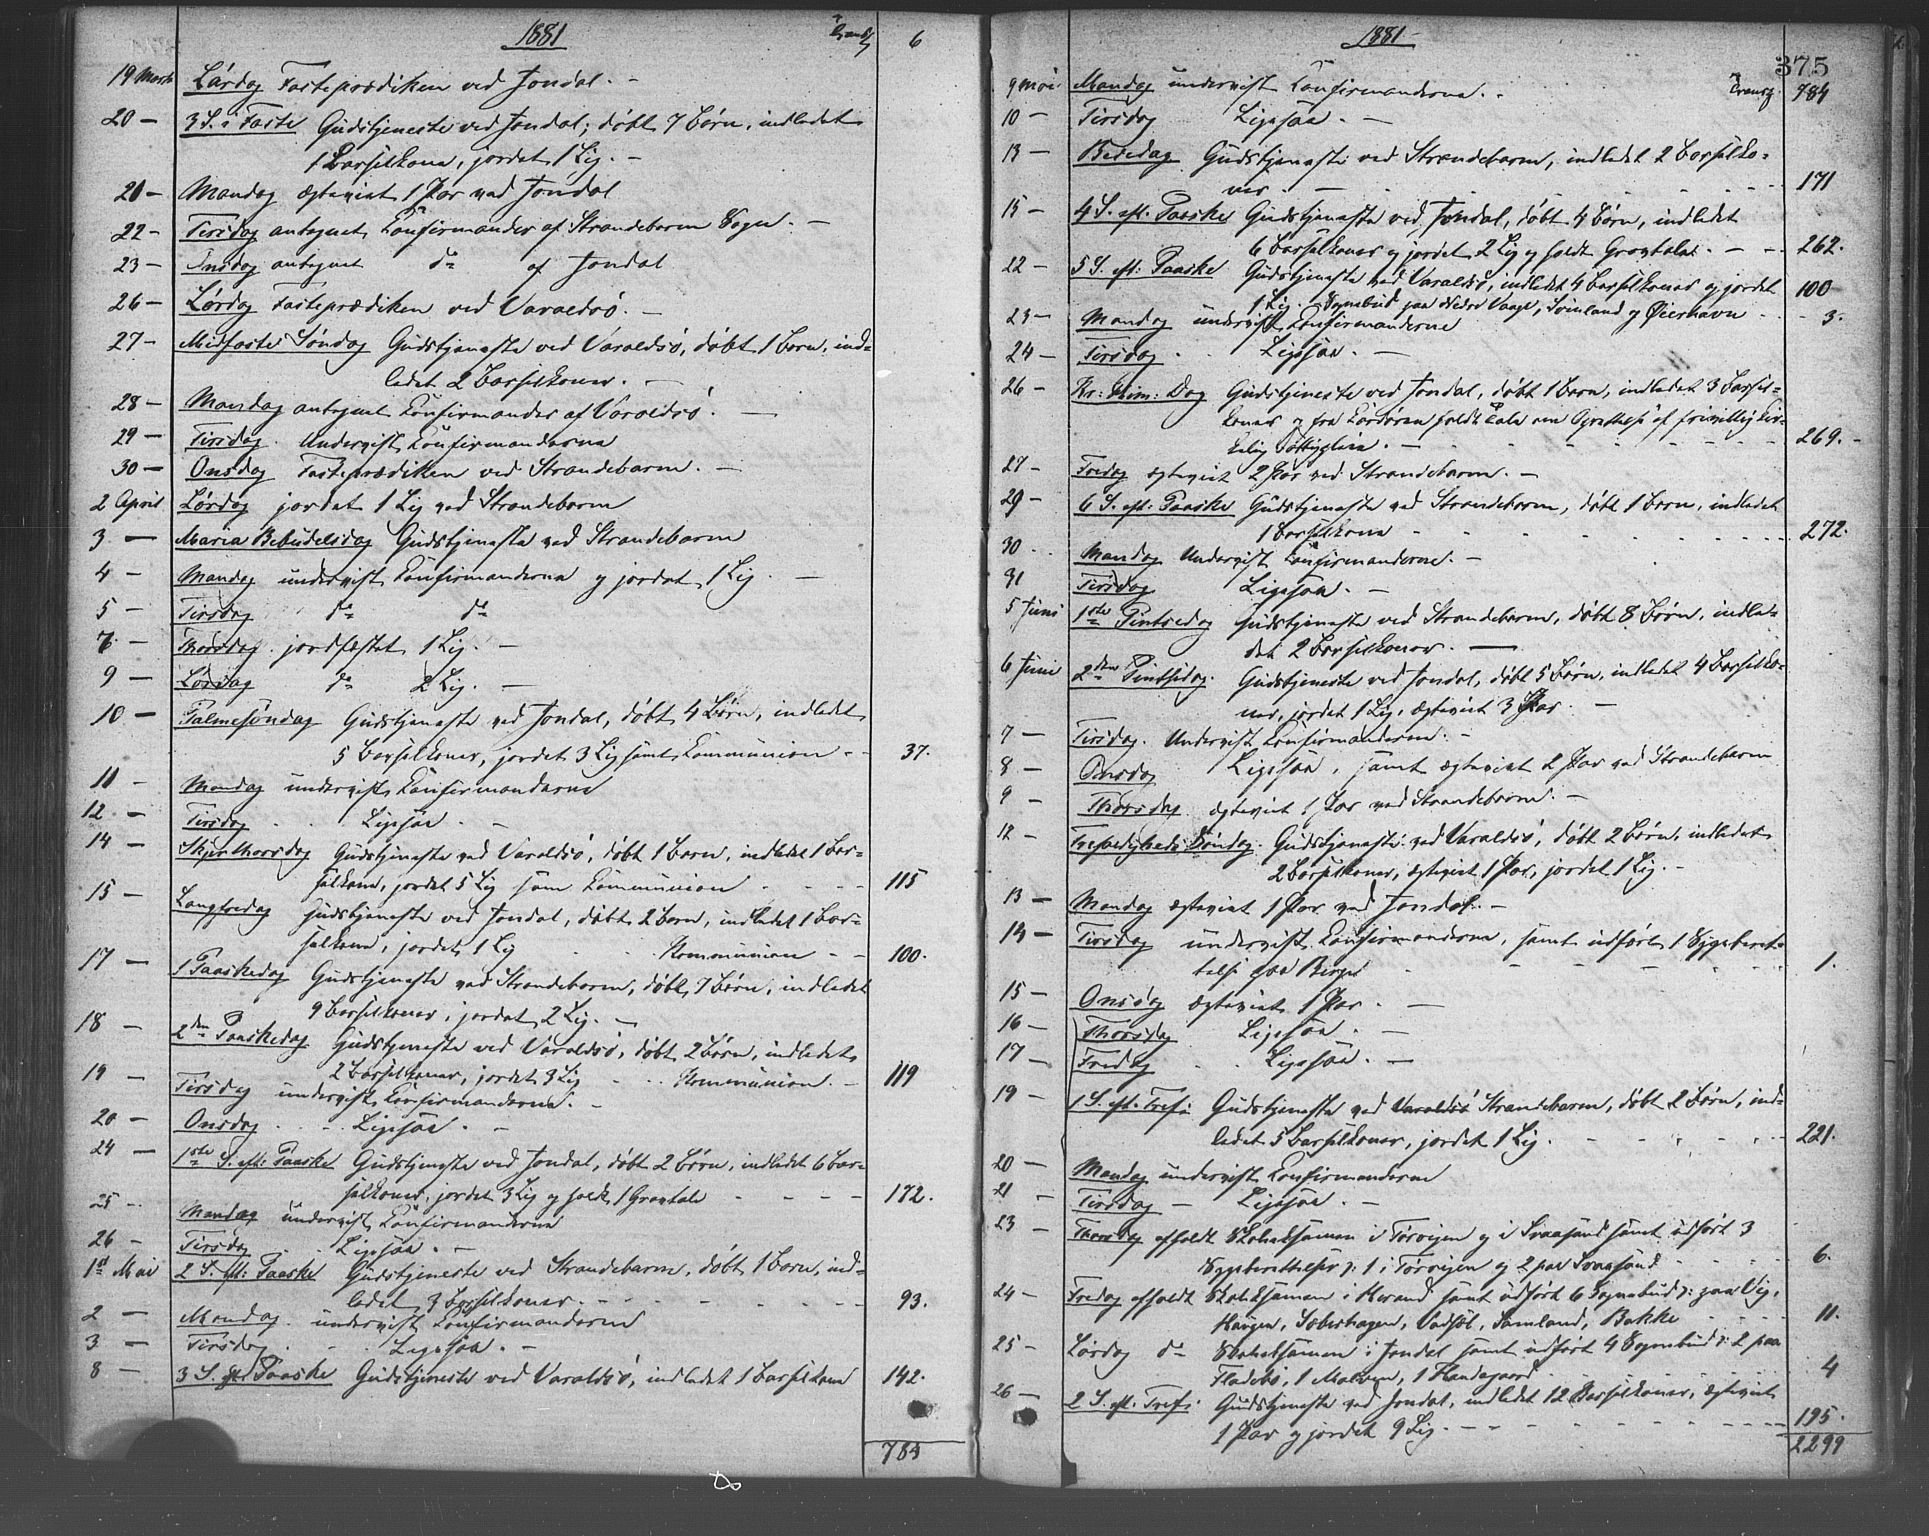 1881
Transp. 6
19 Marts Lördag Fasteprædiken ved Jondal. -
20 - 3 S. i Faste Gudstjeneste ved Jondal; döbt 7 Börn, indledet
1 Barselkone, jordet 1 Lig. -
21 - Mandag ægteviet 1 Par ved Jondal
22 - Tirsdag antegnet Konfirmander af Strandebarm Sogn. -
23 - Onsdag antegnet do af Jondal
26 - Lördag Fasteprædiken ved Varaldsö. -
27 - Midfaste Söndag Gudstjeneste ved Varaldsö, döbt 1 Barn, ind-
ledet 2 Barselkoner. -
28 - Mandag antegnet Konfirmander af Varaldsö. -
29 - Tirsdag. Undervist Konfirmanderne
30 - Onsdag Fasteprædiken ved Strandebarm. -
2 April Lördag jordet 1 Lig ved Strandebarm
3 - Maria Bebudelsdag Gudstjeneste ved Strandebarm
4 - Mandag undervist Konfirmanderne og jordet 1 Lig. -
5 - Tirsdag do do
7 - Thorsdag jordfæstet 1 Lig. -
9 - Lördag do 2 Lig. -
10 - Palmesöndag Gudstjeneste ved Jondal, döbt 4 Börn, indledet
5 Barselkoner, jordet 3 Lig samt Kommunion - - 37.
11 - Mandag undervist Konfirmanderne
12 - Tirsdag . . Ligesaa. -
14 - Skjærthorsdag Gudstjeneste ved Varaldsö, döbt 1 Barn, indledet 1 Bar-
selkone, jordet 5 Lig samt Kommunion - - - 115
15 - Langfredag Gudstjeneste ved Jondal, döbt 2 Börn, indledet 1 Bar-
selkone, jordet 1 Lig . . Kommunion - - 100.
17 - 1 Paaskedag Gudstjeneste ved Strandebarm, döbt 7 Börn, indledet
9 Barselkoner, jordet 2 Lig. -
18 - 2den Paaskedag Gudstjeneste ved Varaldsö, döbt 2 Börn, indledet
2 Barselkoner, jordet 3 Lig - . . Kommunion. - 119
19 - Tirsdag undervist Konfirmanderne. -
20 - Onsdag . . - Ligesaa. -
24 - 1ste S. eft: Paaske Gudstjeneste ved Jondal, döbt 2 Börn, indledet 6 Bar-
selkoner, jordet 3 Lig og holdt 1 Gravtale - - - - 172.
25 - Mandag undervist Konfirmanderne
26 - Tirsdag . . Ligesaa. -
1st Mai 2 S. eft: Paaske Gudstjeneste ved Strandebarm, döbt 1 Barn, ind-
ledet 3 Barselkoner. - - - - - - - 93.
2 - Mandag. undervist Konfirmanderne
3 - Tirsdag . . Ligesaa. -
8 - 3 S. eft: Paaske Gudstjeneste ved Varaldsö, indledet 1 Barselkone 142.
784
1881
375
9 Mai Mandag undervist Konfirmanderne. - Transp. 784
10 - Tirsdag Ligesaa. -
13 - Bededag Gudstjeneste ved Strandebarm, indledet 2 Barselko-
ner - - 171
15 - 4 S. eft. Paaske Gudstjeneste ved Jondal, döbt 4 Börn, indledet
6 Barselkoner og jordet 2 Lig og holdt Gravtaler. - - 262.
22 - 5 S. eft: Paaske Gudstjeneste ved Varaldsö, indledet 4 Barselkoner og jordet 100
1 Lig. Sognebud paa Nedre Vaage, Solesland og Öierhavn - - 3.
23 - Mandag undervist Konfirmanderne
24 - Tirsdag . . Ligesaa. -
26 - Kr: Him: Dag Gudstjeneste ved Jondal, döbt 1 Barn, indledet 3 Barsel-
koner og fra Kordören holdt Tale om Oprettelse af frivillig Kir-
kelig Fattigpleie. - - - - - - 269. -
27 - Fredag ægteviet 2 Par ved Strandebarm. -
29 - 6 S. eft. Paaske Gudstjeneste ved Strandebarm, döbt 1 Barn, indledet
1 Barselkone - - - - - - 272.
30 . . Mandag Undervist Konfirmanderne. -
31 Tirsdag Ligesaa. -
5 Juni 1ste Pintsedag Gudstjeneste ved Strandebarm, döbt 8 Börn, indle-
det 2 Barselkoner. -
6 Juni 2den Pintsedag. Gudstjeneste ved Jondal, döbt 5 Börn, indledet 4 Barselko-
ner, jordet 1 Lig, ægteviet 3 Par. -
7 - Tirsdag. Undervist Konfirmanderne. -
8 - Onsdag Ligesaa, samt ægteviet 2 Par ved Strandebarm
9 - Thorsdag ægteviet 1 Par ved Strandebarm. -
12 - Trefoldigheds Söndag. Gudstjeneste ved Varaldsö, döbt 2 Börn, indledet
2 Barselkoner, ægteviet 1 Par, jordet 1 Lig. -
13 - Mandag ægteviet 1 Par ved Jondal. -
14 - Tirsdag undervist Konfirmanderne, samt udfört 1 Sygeberet-
telse paa Berge - - - - - 1.
15 - Onsdag ægteviet 1 Par. -
16 - Thorsdag Ligesaa. -
17 - Fredag . . Ligesaa. -
19 - 1 S. eft. Tref: Gudstjeneste ved Varaldsö Strandebarm, döbt 2 Börn, ind-
ledet 5 Barselkoner, jordet 1 Lig. - - - - - 221.
20 - Mandag undervist Konfirmanderne
21 - Tirsdag - Ligesaa. -
23 - Thorsdag afholdt Skoleksamen i Torvigen og i Svaasand samt udfört 3
Sygeberettelser ɔ: 1 i Torvigen og 2 paa Svaasand - - - 6.
24 - Fredag afholdt Skoleksamen i Herand samt udfört 6 Sognebud ɔ: paa Vig,
Haugen, Soberhagen, Samland, Bakke - - - 11.
25 - Lördag do Skoleksamen i Jondal samt udfört 4 Sognebud ɔ: 2 paa
Flatebö, 1 Malven, 1 Handegaard. - - - 4
26 - 2 S. eft. Tref: Gudstjeneste ved Jondal, indledet 12 Barselkoner, ægteviet
1 Par og jordet 9 Lig. - - - - - - 195.
2299